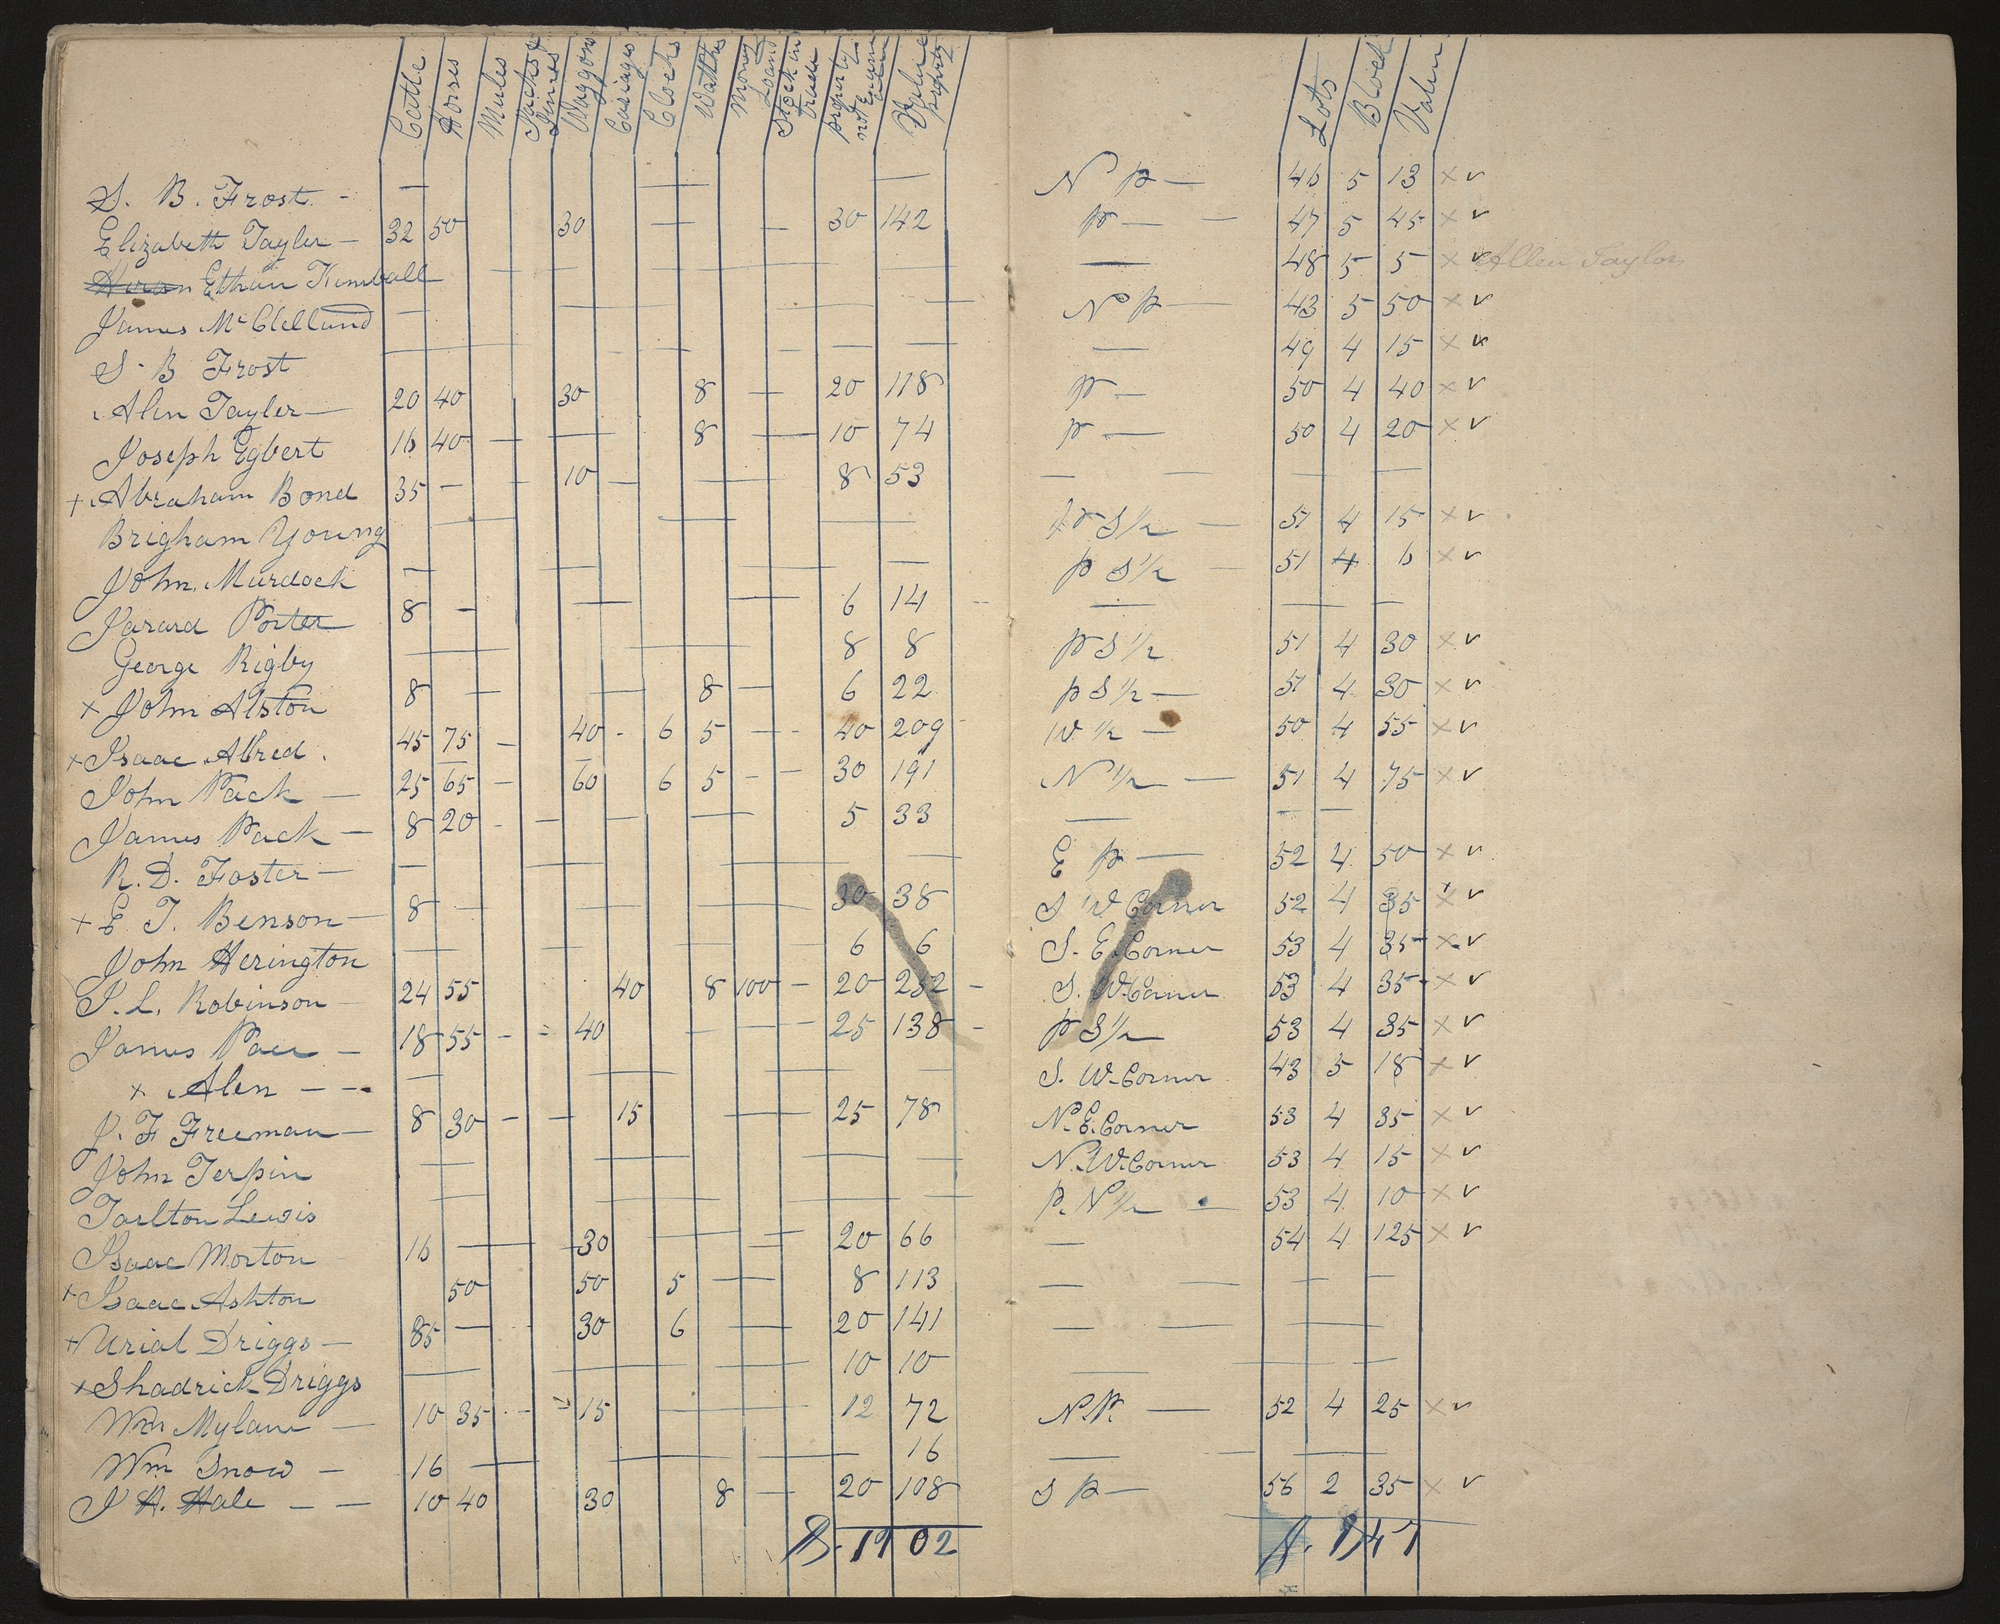 Catle Horses Mules Jacks & Jennes Waggons Cariages Clocks Watches Money Loand Stock in trade property not Enum Value property Lots Block Value
S. B. Frost - — — — N P — 46 5 13 × ✓
Elizabeth Tayler — 32 50 30 — — 30 142 P — — 47 5 45 × ✓
Hiram Ethan Kimball — — — 48 5 5 × ✓ Allen Taylor
James McClelland — — — N P — 43 5 50 × ✓
S. B Frost — — — — 49 4 15 × ✓
Alen Tayler — 20 40 30 8 — 20 118 P — 50 4 40 × ✓
Joseph Egbert 16 40 — — 8 — 10 74 P — 50 4 20 × ✓
+ Abraham Bond 35 — 10 — — 8 53 — — — —
Brigham Young — — — P S 1/2 — 51 4 15 × ✓
John Murdock — — — — P S 1/2 — 51 4 6 × ✓
Jarard Porter 8 — — — 6 14 - — — —
George Rigby — — 8 8 P S 1/2 51 4 30 × ✓
× John Alston 8 — — 8 — 6 22 P S 1/2 — 51 4 30 × ✓
× Isaac Alred . 45 75 — 40 - 6 5 - - 40 209 W 1/2 — 50 4 55 × ✓
John Pack — 25 65 — 60 6 5 - - 30 191 N 1/2 — 51 4 75 × ✓
James Pack — 8 20 - — — — 5 33 — — —
R. D. Foster — — — — — E P — 52 4 50 × ✓
+ E. T. Benson — 8 — — — 30 38 S W Corner 52 4 35 × ✓
John Herington — — — 6 6 S. E. Corner 53 4 35 × ✓
J. L. Robinson — 24 55 40 8 100 — 20 252 - S. W. Corner 53 4 35 × ✓
James Pace — 18 55 - - 40 — — 25 138 - P S 1/2 53 4 35 × ✓
× Alen — — — — — — S. W. Corner 43 5 18 × ✓
J. F Freeman — 8 30 - — 15 — 25 78 N. E. Corner 53 4 35 × ✓
John Terpin — — — — N. W. Corner 53 4 15 × ✓
Tarlton Lewis — — — — P. N 1/2 — 53 4 10 × ✓
Isaac Morton 16 — 30 — — 20 66 — 54 4 125 × ✓
+ Isaac Ashton 50 50 5 — 8 113 — — — —
+ Urial Driggs — 85 — 30 6 — 20 141 — — — —
× Shadrick Driggs — — — 10 10 — —
Wm Mylam — 10 35 - 15 — — 12 72 N. P. — 52 4 25 × ✓
Wm Snow — 16 — — — 16 — — —
J H. Hale — — 10 40 30 8 — 20 108 S P — 56 2 35 × ✓
$. 1902 $. 947